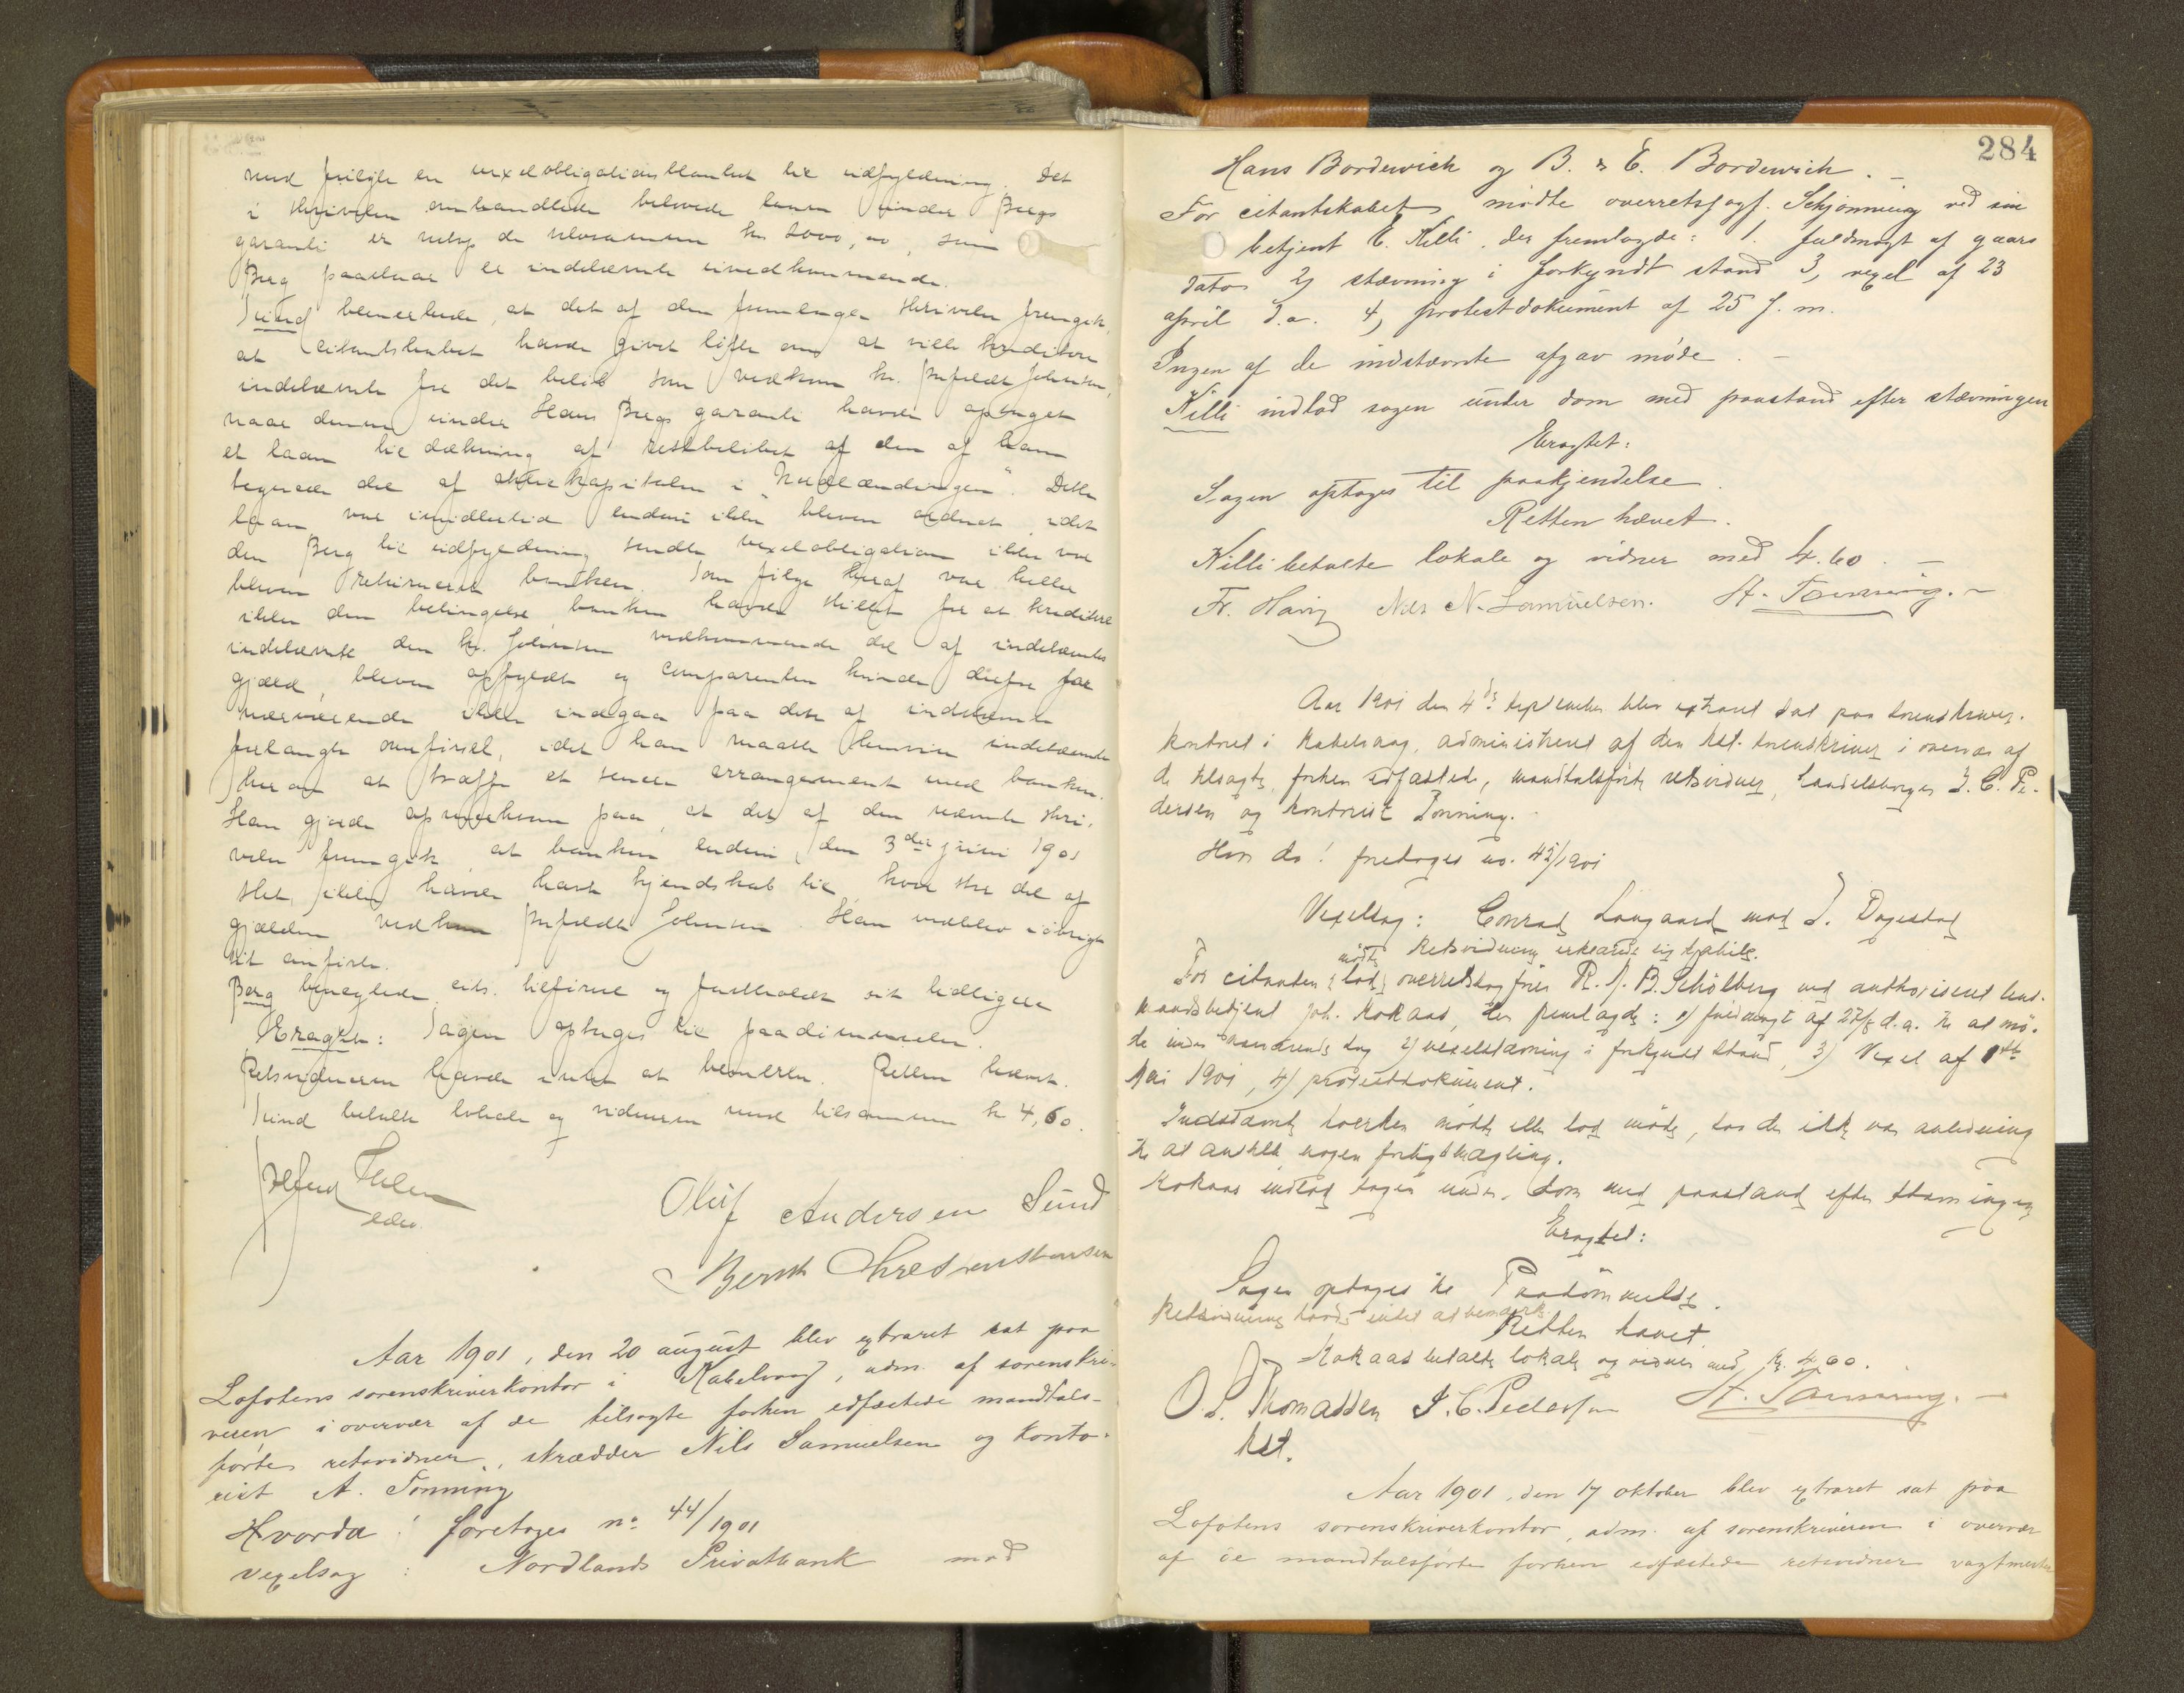 med følgte en vexelobligationsblanket til udfyldning. Det
i skrivelsen omhandlede belovede laan under Bergs
garanti er netop de nævnte kr 2000,00, som
Berg paastaar er indstævnte uvedkommende.
Sund bemerkede, at det af den fremlagte skrivelse fremgik,
at citantskabet havde givet løfte om at ville kreditere
indstævnte for det beløb som vedkom hr. Johnsen,
naar denne under Hans Bergs garanti havde optaget
et laan til dækning af restbeløbet af den af ham
tegnede del af aktiekapitalen i "Nordlændingen". Dette
laan var imidlertid endnu ikke bleven ordnet, idet
den Berg til udfyldning sendte vexelobligation ikke var
bleven returneret banken. Som følge heraf var heller
ikke den betingelse banken havde stillet for at kreditere
indstævnte den hr. Johnsen vedkommende del af indstævntes
gjæld, bleven opfyldt og comparenten kunde derfor for
nærværende ikke indgaa paa det af indstævnte
forlangte, idet han maatte henvise indstævnte
til at træffe et senere arrangement med banken.
Han gjorde opmerksom paa, at det af den nævnte skri-
velse fremgik at banken endnu den 3die juni 1901
slet ikke havde havt kjendskab til, hvor stor del af
gjælden vedkom Johnsen. Han vedblev iøvrigt
sit anførte.
Berg benegtede cits. tilførsel og fastholdt sit tidligere
Eragtet: Sagen optages til paadømmelse.
Retsvidnerne havde intet at bemerke. Retten hævet.
Sund betalte lokale og vidnerne med tilsammen kr 4,60.
Oluf Andersen Sund
Bernt Christensen
Aar 1901, den 20 august blev extraret sat paa
Lofotens sorenskriverkontor i Kabelvaag, adm. af sorenskri-
veren i overvær af de tilsagte forhen edfæstede mandtals-
førte retsvidner, skrædder Nils Samuelsen og konto-
rist A. Tønning
Hvorda! foretoges no 44/1901
vexelsag: Nordlands Privatbank mod
284
Hans Bordewich og B. & E. Bordewich. –
For citantskabet mødte overretssagf. Schjønning ved sin
betjent E. Killi, der fremlagde: 1. fuldmagt af gaars
dato 2) stævning i forkyndt stand 3, vexel af 23
april d.a. 4, protestdokument af 25 f. m.
Ingen af de indstævnte afgav møde. –
Killi indlod sagen under dom med paastand efter stævningen
Eragtet:
Sagen optages til paakjendelse.
Retten hævet.
Killi betalte lokale og vidner med 4.60. –
Nils N. Samuelsen. A. Tønning. –
Aar 1901 den 4de september blev extraret sat paa sorenskriver-
kontoret i Kabelvaag, administreret af den kst. sorenskriver i overvær af
de tilsagte, forhen edfæstede, mandtalsførte retsvidner, handelsborger J. C. Pe-
dersen og kontorist Tønning.
Hvor da! foretoges no. 42/1901
Vexelsag: Conrad Langaard mod J. Dagestad
Retsvidnerne erklærede sig habile.
mødte
For citanten lod overretssagfører R. J. B. Schølberg ved authoriseret lens-
mandsbetjent Joh. Kokaas, der fremlagde: 1) fuldmagt af 27/8 d.a. til at mø-
de under nærværende sag 2) vexelstævning i forkyndt stand, 3) Vexel af 1ste
Mai 1901, 4) protestdokument.
Indstævnte hverken mødte eller lod møde, saa der ikke var anledning
til at anstille nogen forligsmægling.
Kokaas indlod sagen under dom med paastand efter stævningen
Eragtet:
Sagen optages til Paadømmelse.
Retsvidnerne havde intet at bemærke.
Retten hævet
Kokaas betalte lokale og vidner med kr. 4.60.
O. S. Thomassen J. C. Pedersen A. Tønning. –
kst.
Aar 1901, den 17 oktober blev extraret sat paa
Lofotens sorenskriverkontor, adm. af sorenskriveren i overvær
af de mandtalsførte forhen edfæstede retsvidner vagtmester